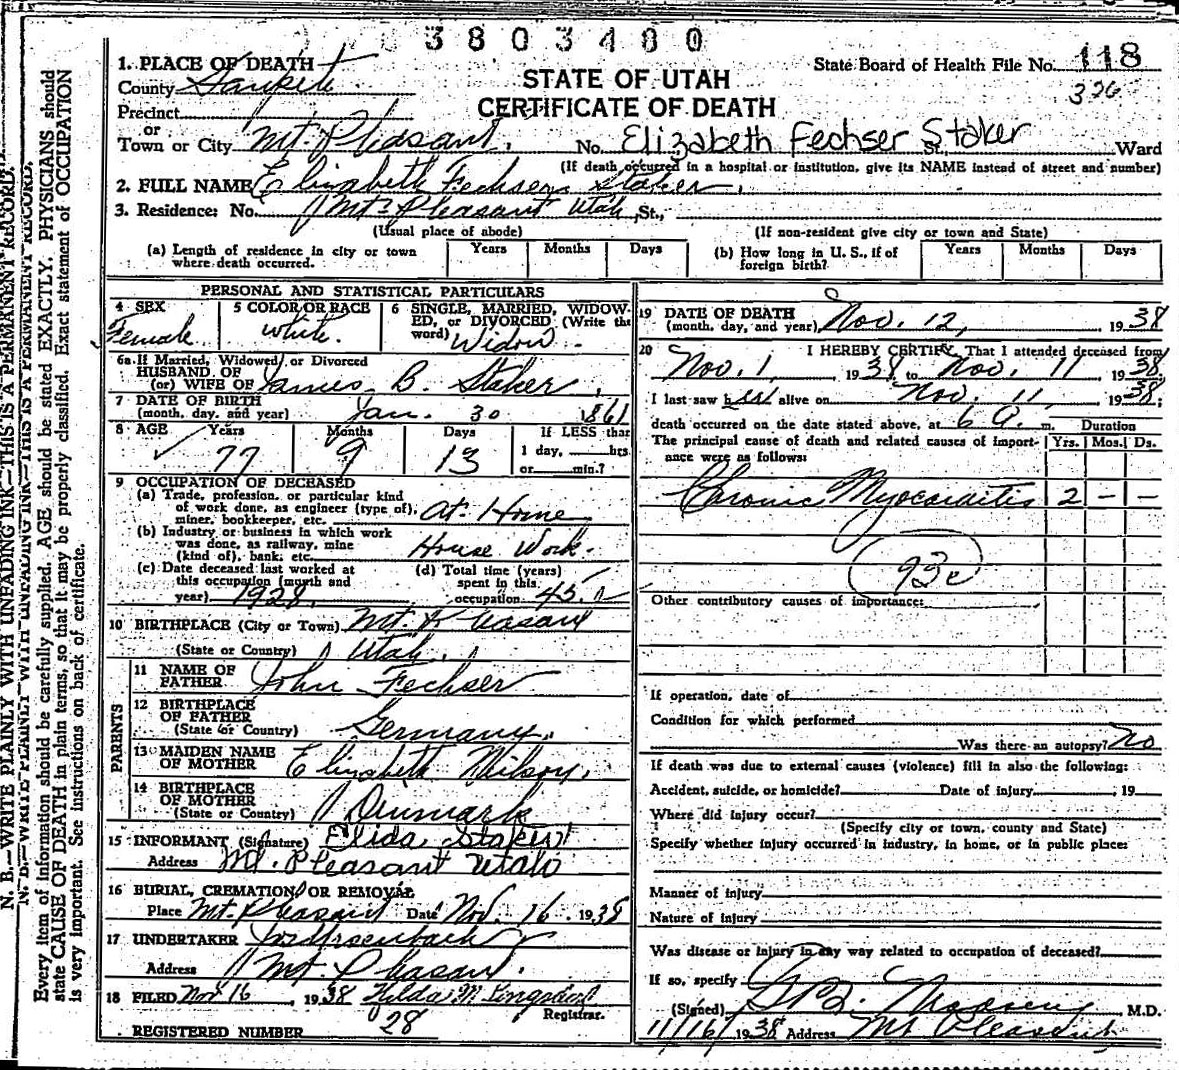 3803400
1. PLACE OF DEATH
State Board of Health File No. 118
County Sanpete
326
STATE OF UTAH
CERTIFICATE OF DEATH
Precinct
or
Town or City Mt. Pleasant. No. Elizabeth Fechser Staker St. Ward
(If death occurred in a hospital or institution, give its NAME instead of street and number)
2. FULL NAME Elizabeth Fechser Staker.
3. Residence: No. Mt. Pleasant Utah St.,
(Usual place of abode) (If non-resident give city or town and State)
(a) Length of residence in city or town where death occurred. Years Months Days
(b) How long in U. S., if of foreign birth? Years Months Days
PERSONAL AND STATISTICAL PARTICULARS
4 SEX Female
5 COLOR OR RACE white.
6 SINGLE, MARRIED, WIDOWED, or DIVORCED (Write the word) Widow
6a If Married, Widowed, or Divorced
HUSBAND OF
(or) WIFE OF James B. Staker
7 DATE OF BIRTH
(month, day, and year) Jan. 30 1861
8 AGE Years Months Days If LESS than
77 9 13 1 day, hrs.
or min.?
9 OCCUPATION OF DECEASED
(a) Trade, profession, or particular kind
of work done, as engineer (type of),
miner, bookkeeper, etc. At Home
(b) Industry or business in which work
was done, as railway, mine
(kind of), bank, etc. House Work.
(c) Date deceased last worked at
this occupation (month and
year) 1928.
(d) Total time (years)
spent in this
occupation 45.
10 BIRTHPLACE (City or Town) Mt. Pleasant
(State or Country) Utah.
PARENTS
11 NAME OF
FATHER John Fechser
12 BIRTHPLACE
OF FATHER
(State or Country) Germany.
13 MAIDEN NAME
OF MOTHER Elizabeth
14 BIRTHPLACE
OF MOTHER
(State or Country) Denmark
15 INFORMANT (Signature) Elida Staker
Address Mt. Pleasant Utah
16 BURIAL, CREMATION OR REMOVAL
Place Mt. Pleasant Date Nov. 16. 1938
17 UNDERTAKER
Address Mt. Pleasant.
18 FILED Nov 16, 1938 Hilda M
Registrar.
28
REGISTERED NUMBER
19 DATE OF DEATH
(month, day, and year) Nov. 12, 1938
20 I HEREBY CERTIFY, That I attended deceased from
Nov. 1, 1938, to Nov. 11 1938,
I last saw her alive on Nov. 11, 1938;
death occurred on the date stated above, at 6 a. m. Duration
The principal cause of death and related causes of importance were as follows: Yrs. Mos. Ds.
Chronic Myocarditis 2 - -
93c
Other contributory causes of importance:
If operation, date of
Condition for which performed
Was there an autopsy? No
If death was due to external causes (violence) fill in also the following:
Accident, suicide, or homicide? Date of injury , 19
Where did injury occur?
(Specify city or town, county and State)
Specify whether injury occurred in industry, in home, or in public place:
Manner of injury
Nature of injury
Was disease or injury in any way related to occupation of deceased?
If so, specify
(Signed) M.D.
11/16/1938 Address Mt Pleasant
N. B.—WRITE PLAINLY WITH UNFADING INK—THIS IS A PERMANENT RECORD.
N. B.—WRITE PLAINLY WITH UNFADING INK—THIS IS A PERMANENT RECORD.
Every item of information should be carefully supplied. AGE should be stated EXACTLY. PHYSICIANS should
state CAUSE OF DEATH in plain terms, so that it may be properly classified. Exact statement of OCCUPATION
is very important. See instructions on back of certificate.